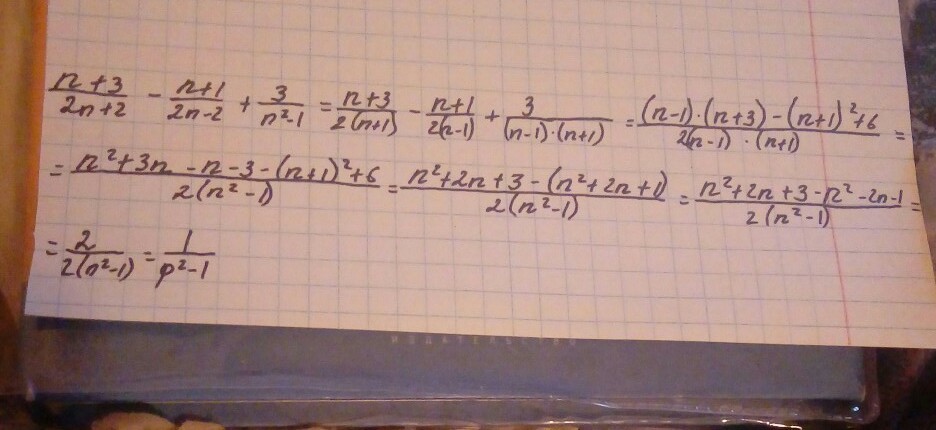 (n+3)/(2n+2) - (n+1)/(2n-2) + 3/(n²-1) = (n+3)/(2(n+1)) - (n+1)/(2(n-1)) + 3/((n-1)·(n+1)) = ((n-1)·(n+3)-(n+1)²+6)/(2(n-1)·(n+1)) =
= (n²+3n-n-3-(n+1)²+6)/(2(n²-1)) = (n²+2n+3-(n²+2n+1))/(2(n²-1)) = (n²+2n+3-n²-2n-1)/(2(n²-1)) =
= 2/(2(n²-1)) = 1/(n²-1)
ИЗДАТЕЛЬСТВО